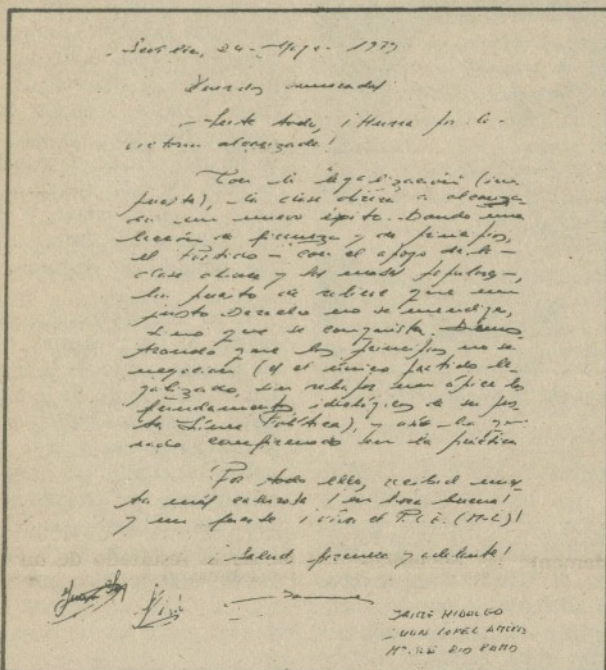 Sevilla, 24-Mayo-1979
Queridos camaradas
- Ante todo, ¡Hurra por la
victoria alcanzada!
Con la legalización (im
puesta), la clase obrera a alcanza
do un nuevo éxito. Dando una
lección de firmeza y de principios,
el Partido - con el apoyo de la
clase obrera y las masas populares -,
ha puesto de relieve que un
justo Derecho no se mendiga,
sino que se conquista. Demos
trando que los principios no se
negocian (es el único partido le
galizado, sin rebajar un ápice los
fundamentos ideológicos de su jus
ta Línea Política), y así ha que
dado confirmado en la práctica
Por todo ello, recibid nues
tra más calurosa ¡en hora buena!
y un fuerte ¡viva el P.C.E. (M-L)!
¡Salud, firmeza y adelante!
JAIME HIDALGO
JUAN LOPEZ
Mª JOSE RIO